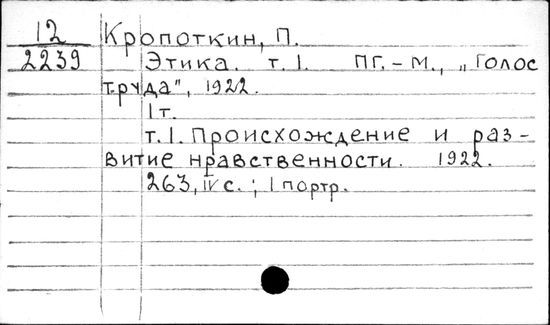 12 Кропоткин, П.
2239 Этика. т.I. ПГ.-М., „Голос
труда", 1922.
1 т.
т.I. Происхождение и раз-
витие нравственности. 1922.
263, IV с.; 1 портр.